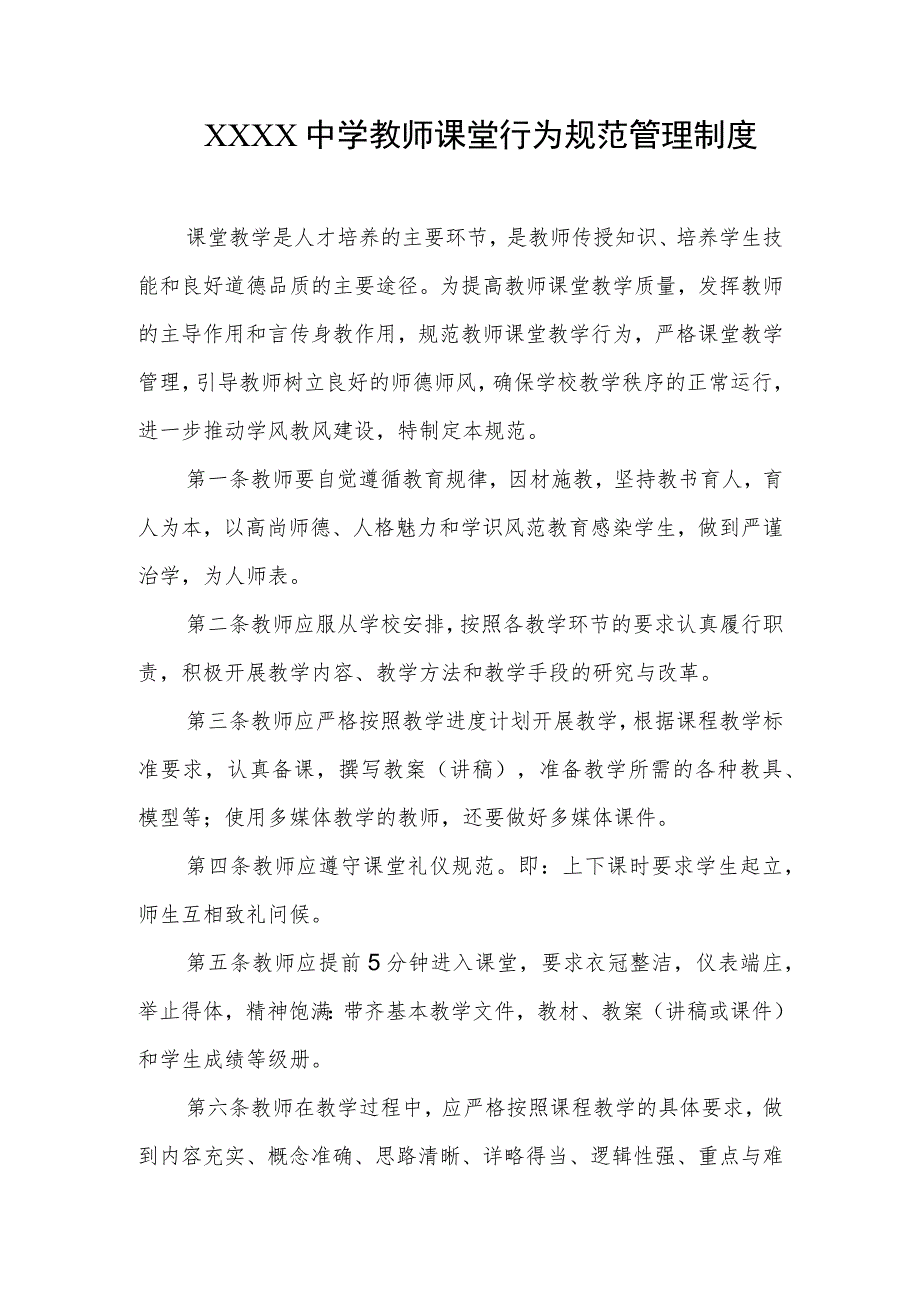 XXXX 中学教师课堂行为规范管理制度
课堂教学是人才培养的主要环节，是教师传授知识、培养学生技
能和良好道德品质的主要途径。为提高教师课堂教学质量，发挥教师
的主导作用和言传身教作用，规范教师课堂教学行为，严格课堂教学
管理，引导教师树立良好的师德师风，确保学校教学秩序的正常运行，
进一步推动学风教风建设，特制定本规范。
第一条教师要自觉遵循教育规律，因材施教，坚持教书育人，育
人为本，以高尚师德、人格魅力和学识风范教育感染学生，做到严谨
治学，为人师表。
第二条教师应服从学校安排，按照各教学环节的要求认真履行职
责，积极开展教学内容、教学方法和教学手段的研究与改革。
第三条教师应严格按照教学进度计划开展教学，根据课程教学标
准要求，认真备课，撰写教案（讲稿），准备教学所需的各种教具、
模型等；使用多媒体教学的教师，还要做好多媒体课件。
第四条教师应遵守课堂礼仪规范。即：上下课时要求学生起立，
师生互相致礼问候。
第五条教师应提前 5 分钟进入课堂，要求衣冠整洁，仪表端庄，
举止得体，精神饱满：带齐基本教学文件，教材、教案（讲稿或课件）
和学生成绩等级册。
第六条教师在教学过程中，应严格按照课程教学的具体要求，做
到内容充实、概念准确、思路清晰、详略得当、逻辑性强、重点与难